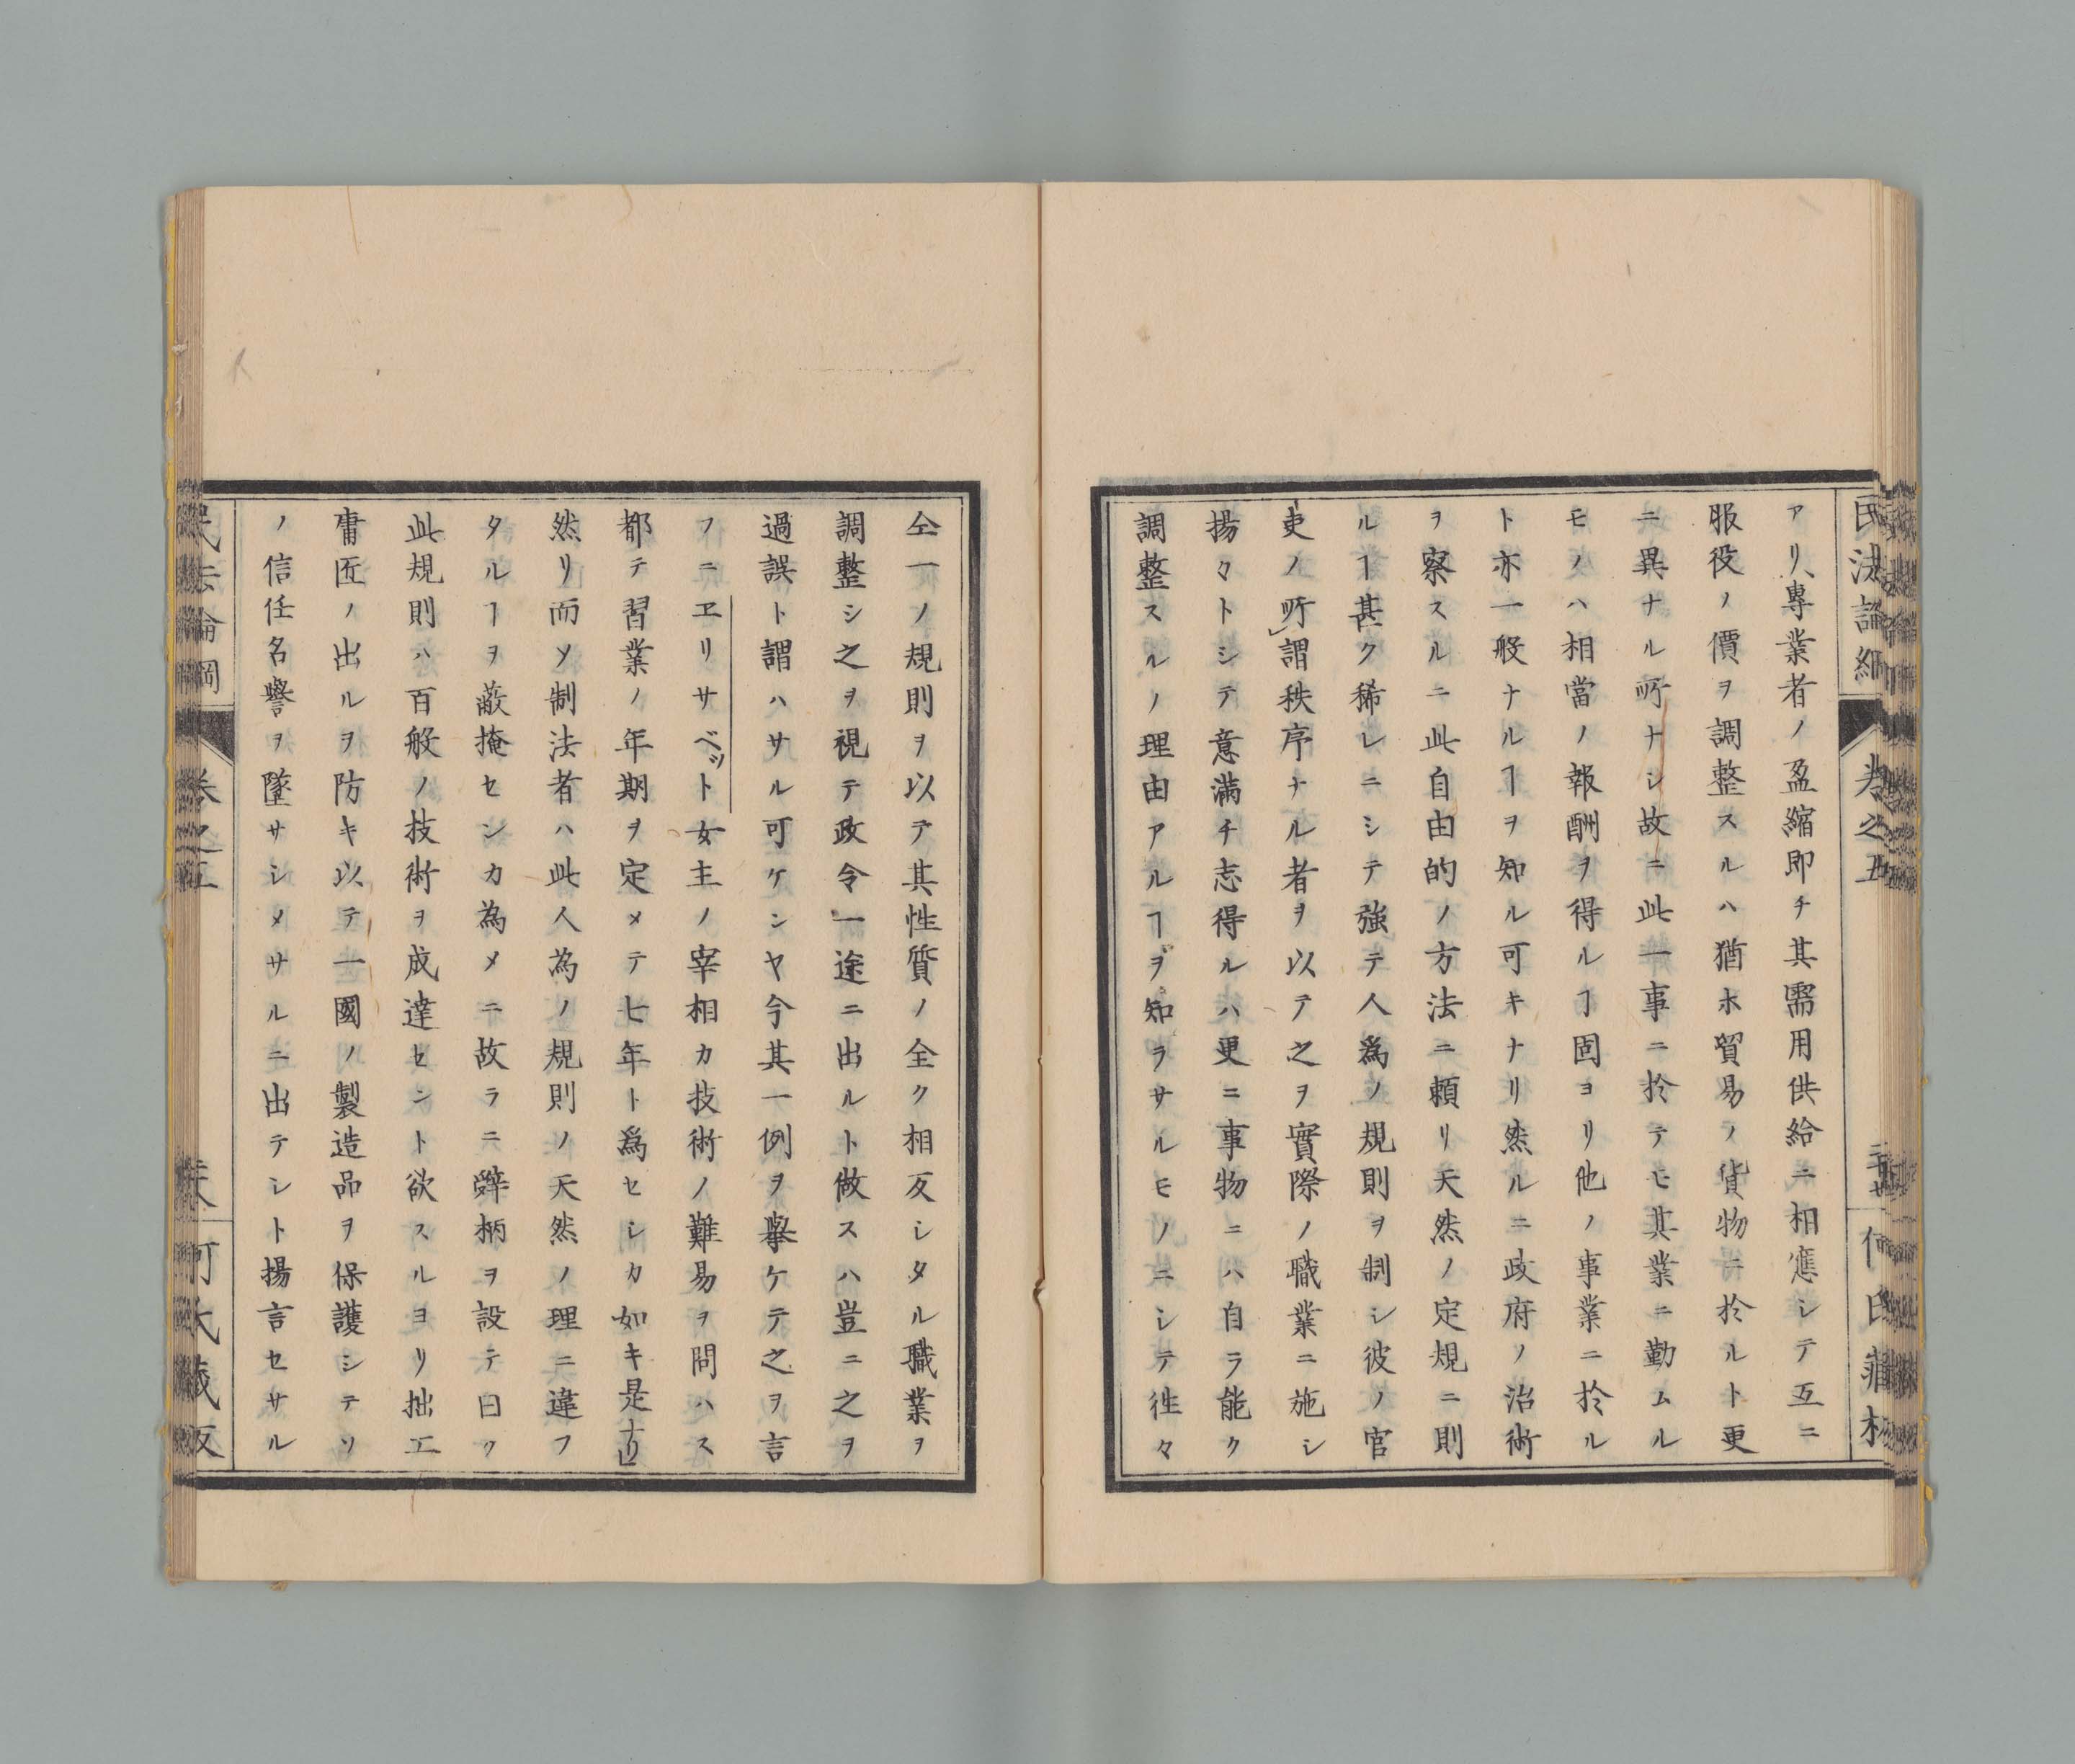 アリ專業者ノ盈縮即チ其需用供給ニ相應シテ互ニ
服役ノ價ヲ調整スルハ猶ホ貿易ノ貨物ニ於ルト更
ニ異ナル所ナシ故ニ此一事ニ於テモ其業ニ勤ムル
モノハ相當ノ報酬ヲ得ルヿ固ヨリ他ノ事業ニ於ル
ト亦一般ナルヿヲ知ル可キナリ然ルニ政府ノ治術
ヲ察スルニ此自由的ノ方法ニ頼リ天然ノ定規ニ則
ルヿ甚タ稀レニシテ強テ人爲ノ規則ヲ制シ彼ノ官
吏ノ所謂秩序ナル者ヲ以テ之ヲ實際ノ職業ニ施シ
揚々トシテ意滿チ志得ルハ更ニ事物ニハ自ラ能ク
調整スルノ理由アルヿヲ知ラサルモノニシテ徃々
仝一ノ規則ヲ以テ其性質ノ全ク相反シタル職業ヲ
調整シ之ヲ視テ政令一途ニ出ルト做スハ豈ニ之ヲ
過誤ト謂ハサル可ケンヤ今其一例ヲ擧ケテ之ヲ言
フニヱリサベット女主ノ宰相カ技術ノ難易ヲ問ハス
都テ習業ノ年期ヲ定メテ七年ト爲セシカ如キ是ナリ
然リ而ソ制法者ハ此人為ノ規則ノ天然ノ理ニ違フ
タルヿヲ蔽掩センカ為メニ故ラニ辭柄ヲ設テ曰ク
此規則ハ百般ノ技術ヲ成達セント欲スルヨリ拙工
庸匠ノ出ルヲ防キ以テ一國ノ製造品ヲ保護シテソ
ノ信任名譽ヲ墜サシメサルニ出テシト揚言セサル
民法論綱
卷之五